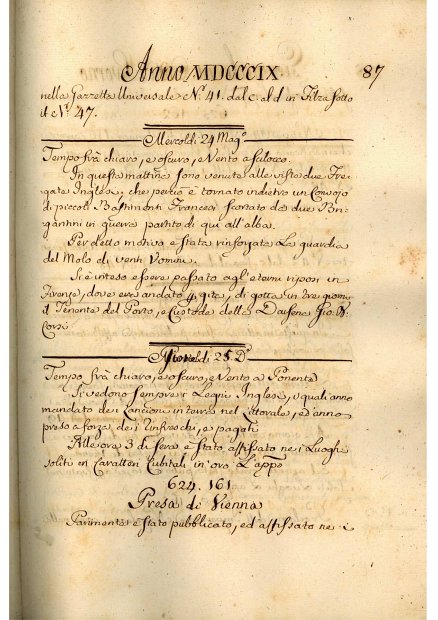 Anno MDCCCIX 87
nella Gazzetta Universale N.º 41. dal c. al d in Filza sotto
il N.º 47.
Mercoldì 24 Magº
Tempo frà chiaro, e oscuro, e Vento a Scilocco.
In questa mattina sono venute alle viste due Fre-
gate Inglesi, che perciò è tornato indietro un Convojo
di piccoli Bastimenti Francesi scortato da due Bri-
gantini in guerra partito di quì all'alba.
Per detto motivo è stata rinforzata La guardia
del Molo di venti Uomini.
Si è inteso essere passato agl'eterni riposi in
Firenze, dove era andato a gita, di gotta in tre giorni
il Tenente del Porto, e Custode della Darsena Gio:
Corsi
Giovedì 25 Dº
Tempo frà chiaro, e oscuro, e Vento a Ponente
Si vedono sempre i Legni Inglesi, i quali anno
mandato dei Lancioni in terra nel Littorale, ed anno
preso a forza dei Rinfreschi, e pagati
Alle ore 3 di sera è stato affissato nei Luoghi
soliti in Caratteri Cubitali in oro L'appº
624. 161
Presa di Vienna
Parimente è stato pubblicato, ed affissato ne i